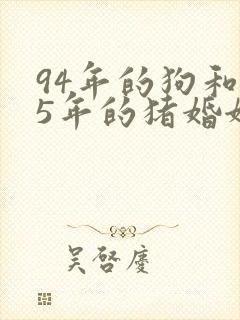 94年的狗和
5年的猪婚
吴啓慶